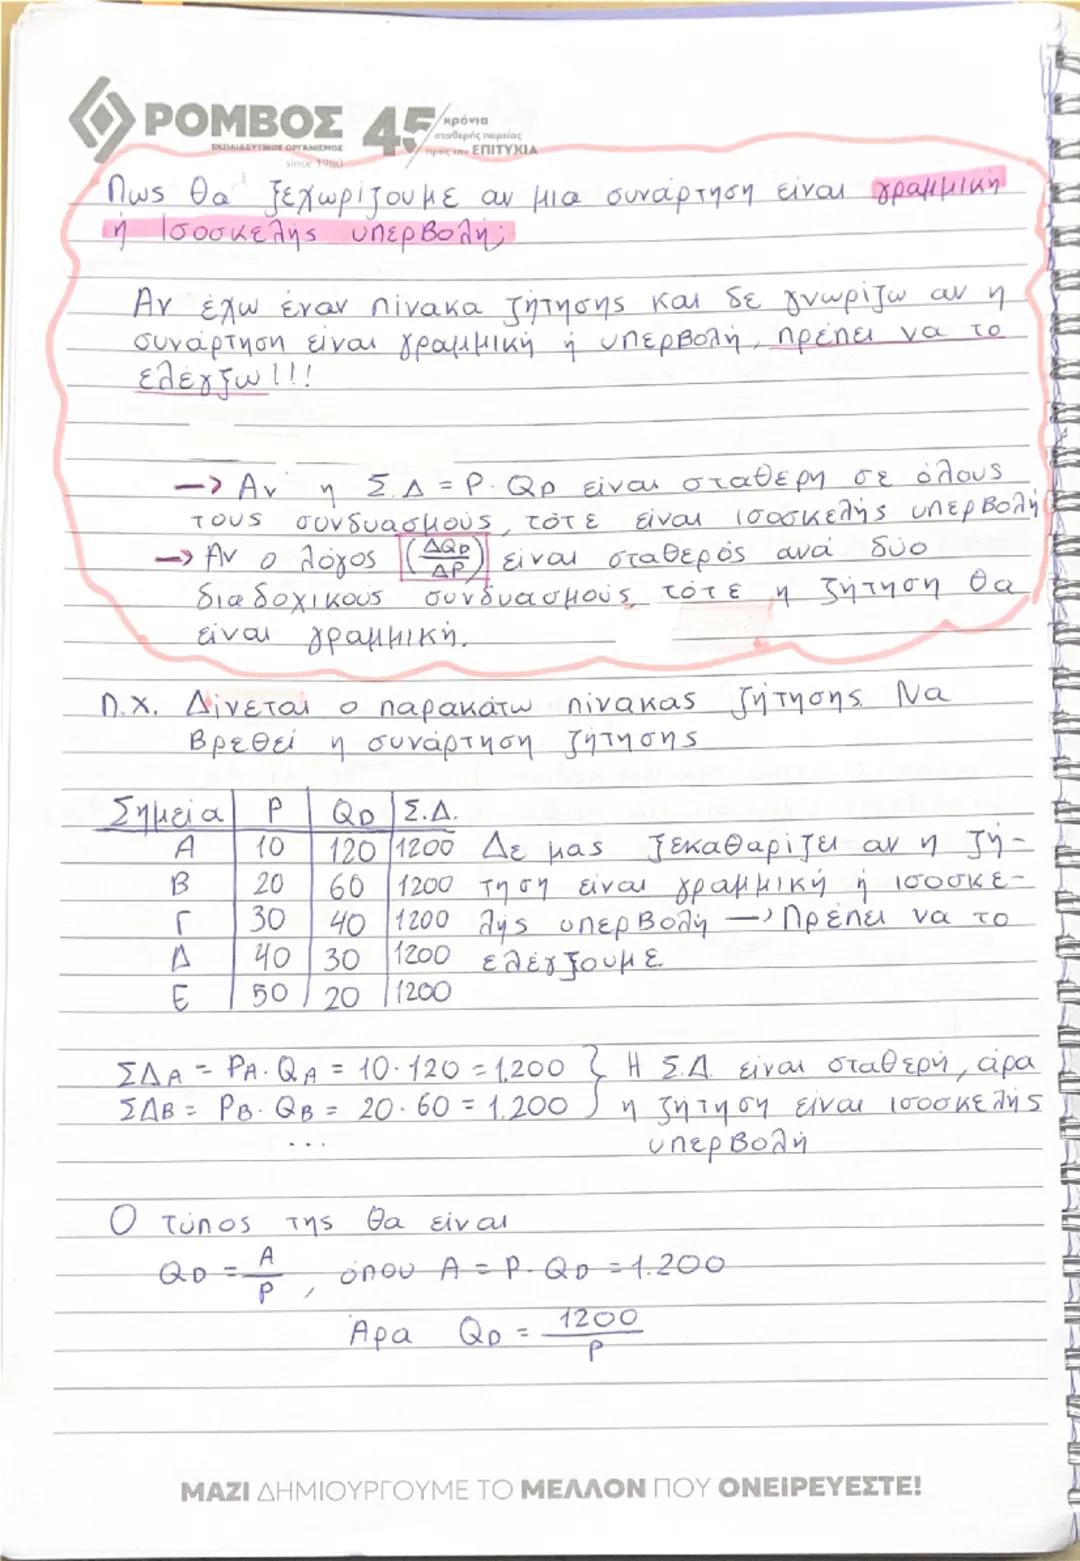 ΡΟΜΒΟΣ 45 χρόνια
ΕΚΠΑΙΔΕΥΤΙΚΟΣ ΟΡΓΑΝΙΣΜΟΣ σταθερής πορείας
since 1980 προς την ΕΠΙΤΥΧΙΑ
Πως θα ξεχωρίζουμε αν μια συνάρτηση είναι γραμμική
ή Ισοσκελής υπερβολή;
Αν έχω έναν πίνακα ζήτησης και δε γνωρίζω αν η
συνάρτηση είναι γραμμική ή υπερβολή, πρέπει να το
ελέγξω!!!
-> Αν η Σ.Δ = P. QD είναι σταθερη σε όλους
τους συνδυασμούς, τότε είναι ισοσκελής υπερβολή
-> Αν ο λόγος (ΔQD/ΔP) είναι σταθερός ανά δύο
διαδοχικούς συνδυασμούς, τότε η ζήτηση θα
είναι γραμμική.
Π.Χ. Δίνεται ο παρακάτω πίνακας ζήτησης. Να
βρεθεί η συνάρτηση ζήτησης
Σημεία P QD Σ.Δ.
Α 10 120 1200 Δε μας ξεκαθαρίζει αν η ζή-
Β 20 60 1200 τηση είναι γραμμική ή ισοσκε-
Γ 30 40 1200 λής υπερβολή -> Πρέπει να το
Δ 40 30 1200 ελέγξουμε
Ε 50 20 1200
ΣΔA = PA. QA = 10. 120 = 1.200 } Η Σ.Δ. είναι σταθερή, άρα
ΣΔB = PB. QB = 20. 60 = 1.200 } η ζήτηση είναι ισοσκελής
... υπερβολή
Ο τύπος της θα είναι
QD = A/P, όπου A = P. QD = 1.200
Άρα QD = 1200/P
ΜΑΖΙ ΔΗΜΙΟΥΡΓΟΥΜΕ ΤΟ ΜΕΛΛΟΝ ΠΟΥ ΟΝΕΙΡΕΥΕΣΤΕ!